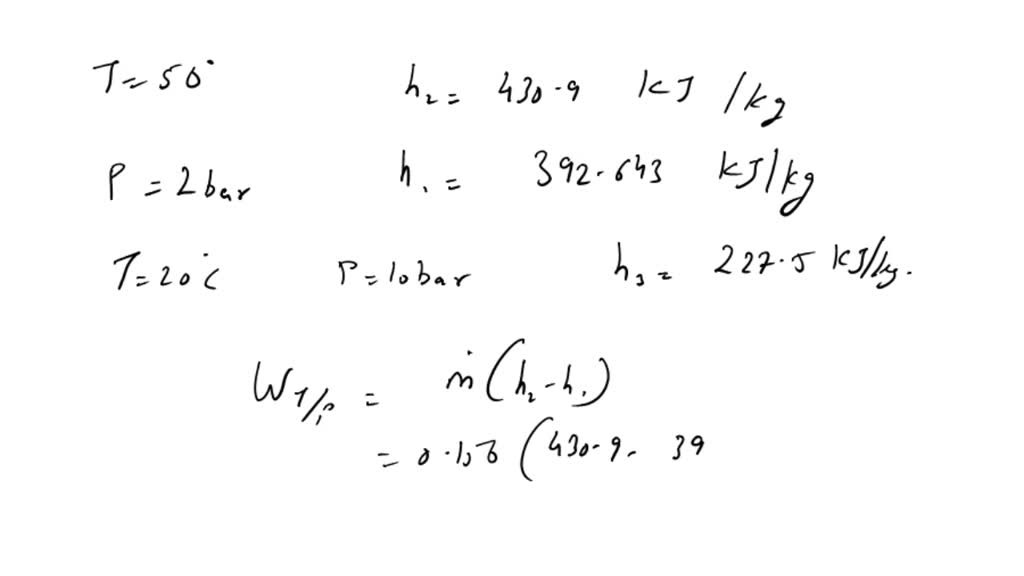 T = 50° h₂ = 430.9 kJ /kg
P = 2 bar h₁ = 392.643 kJ/kg
T = 20°C P = 10 bar h₃ = 227.5 kJ/kg.
= ṁ (h₂ - h₁)
= (430.9 - 39